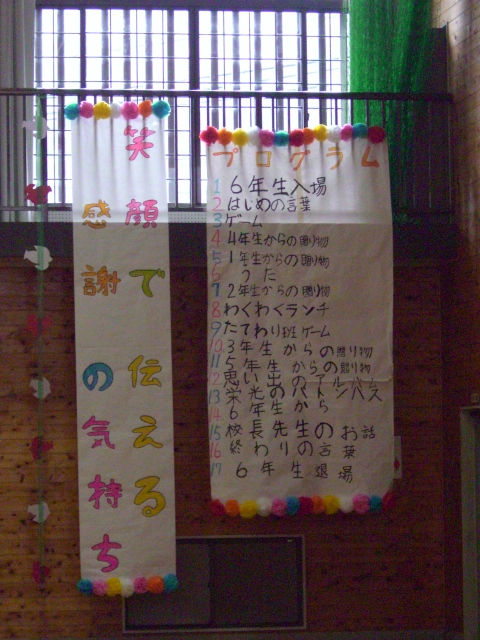 笑顔で伝える
感謝の気持ち
プログラム
1 6年生入場
2 はじめの言葉
3 ゲーム
4 4年生からの贈り物
5 1年生からの贈り物
6 うた
7 2年生からの贈り物
8 わくわくランチ
9 たてわり班ゲーム
10 3年生からの贈り物
11 5年生からの贈り物
12 思い出のアルバム
13 栄光のバトンパス
14 6年生から
15 校長先生のお話
16 終わりの言葉
17 6年生退場